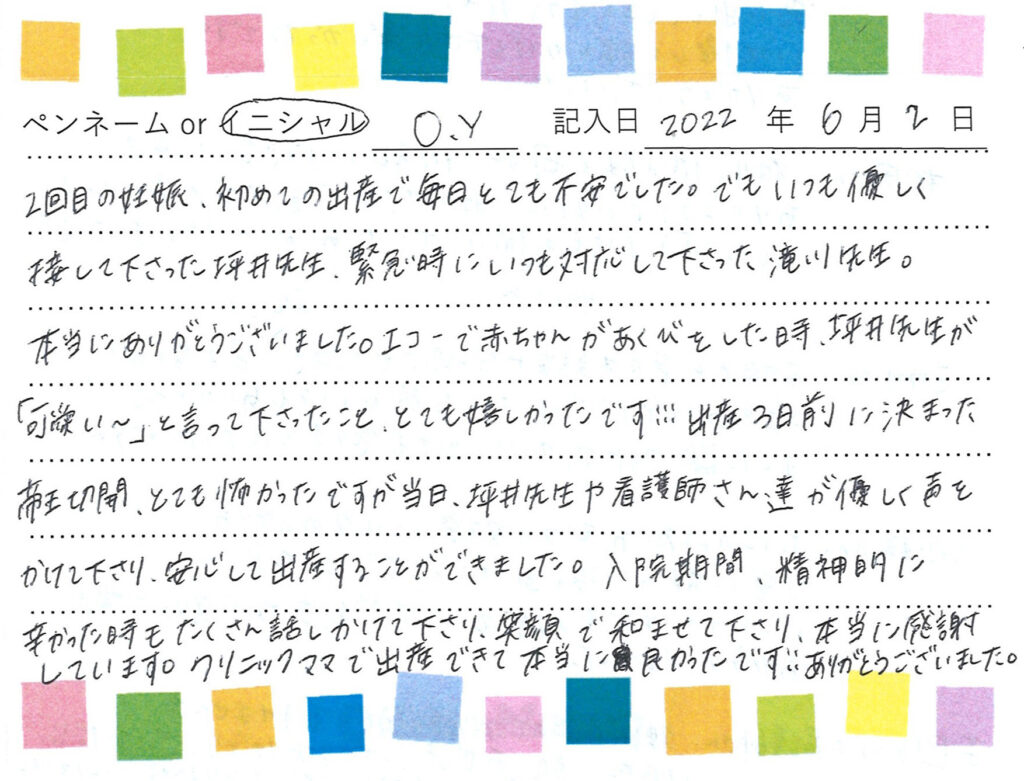 ペンネーム or イニシャル O.Y 記入日 2022 年 6 月 2 日
2回目の妊娠、初めての出産で毎日とても不安でした。でもいつも優しく
接して下さった坪井先生、緊急時にいつも対応して下さった滝川先生。
本当にありがとうございました。エコーで赤ちゃんがあくびをした時、坪井先生が
「可愛い〜」と言って下さったこと、とても嬉しかったです!!! 出産3日前に決まった
帝王切開、とても怖かったですが当日、坪井先生や看護師さん達が優しく声を
かけて下さり、安心して出産することができました。入院期間、精神的に
辛かった時もたくさん話しかけて下さり、笑顔で和ませて下さり、本当に感謝
しています。クリニックママで出産できて本当に良かったです!! ありがとうございました。